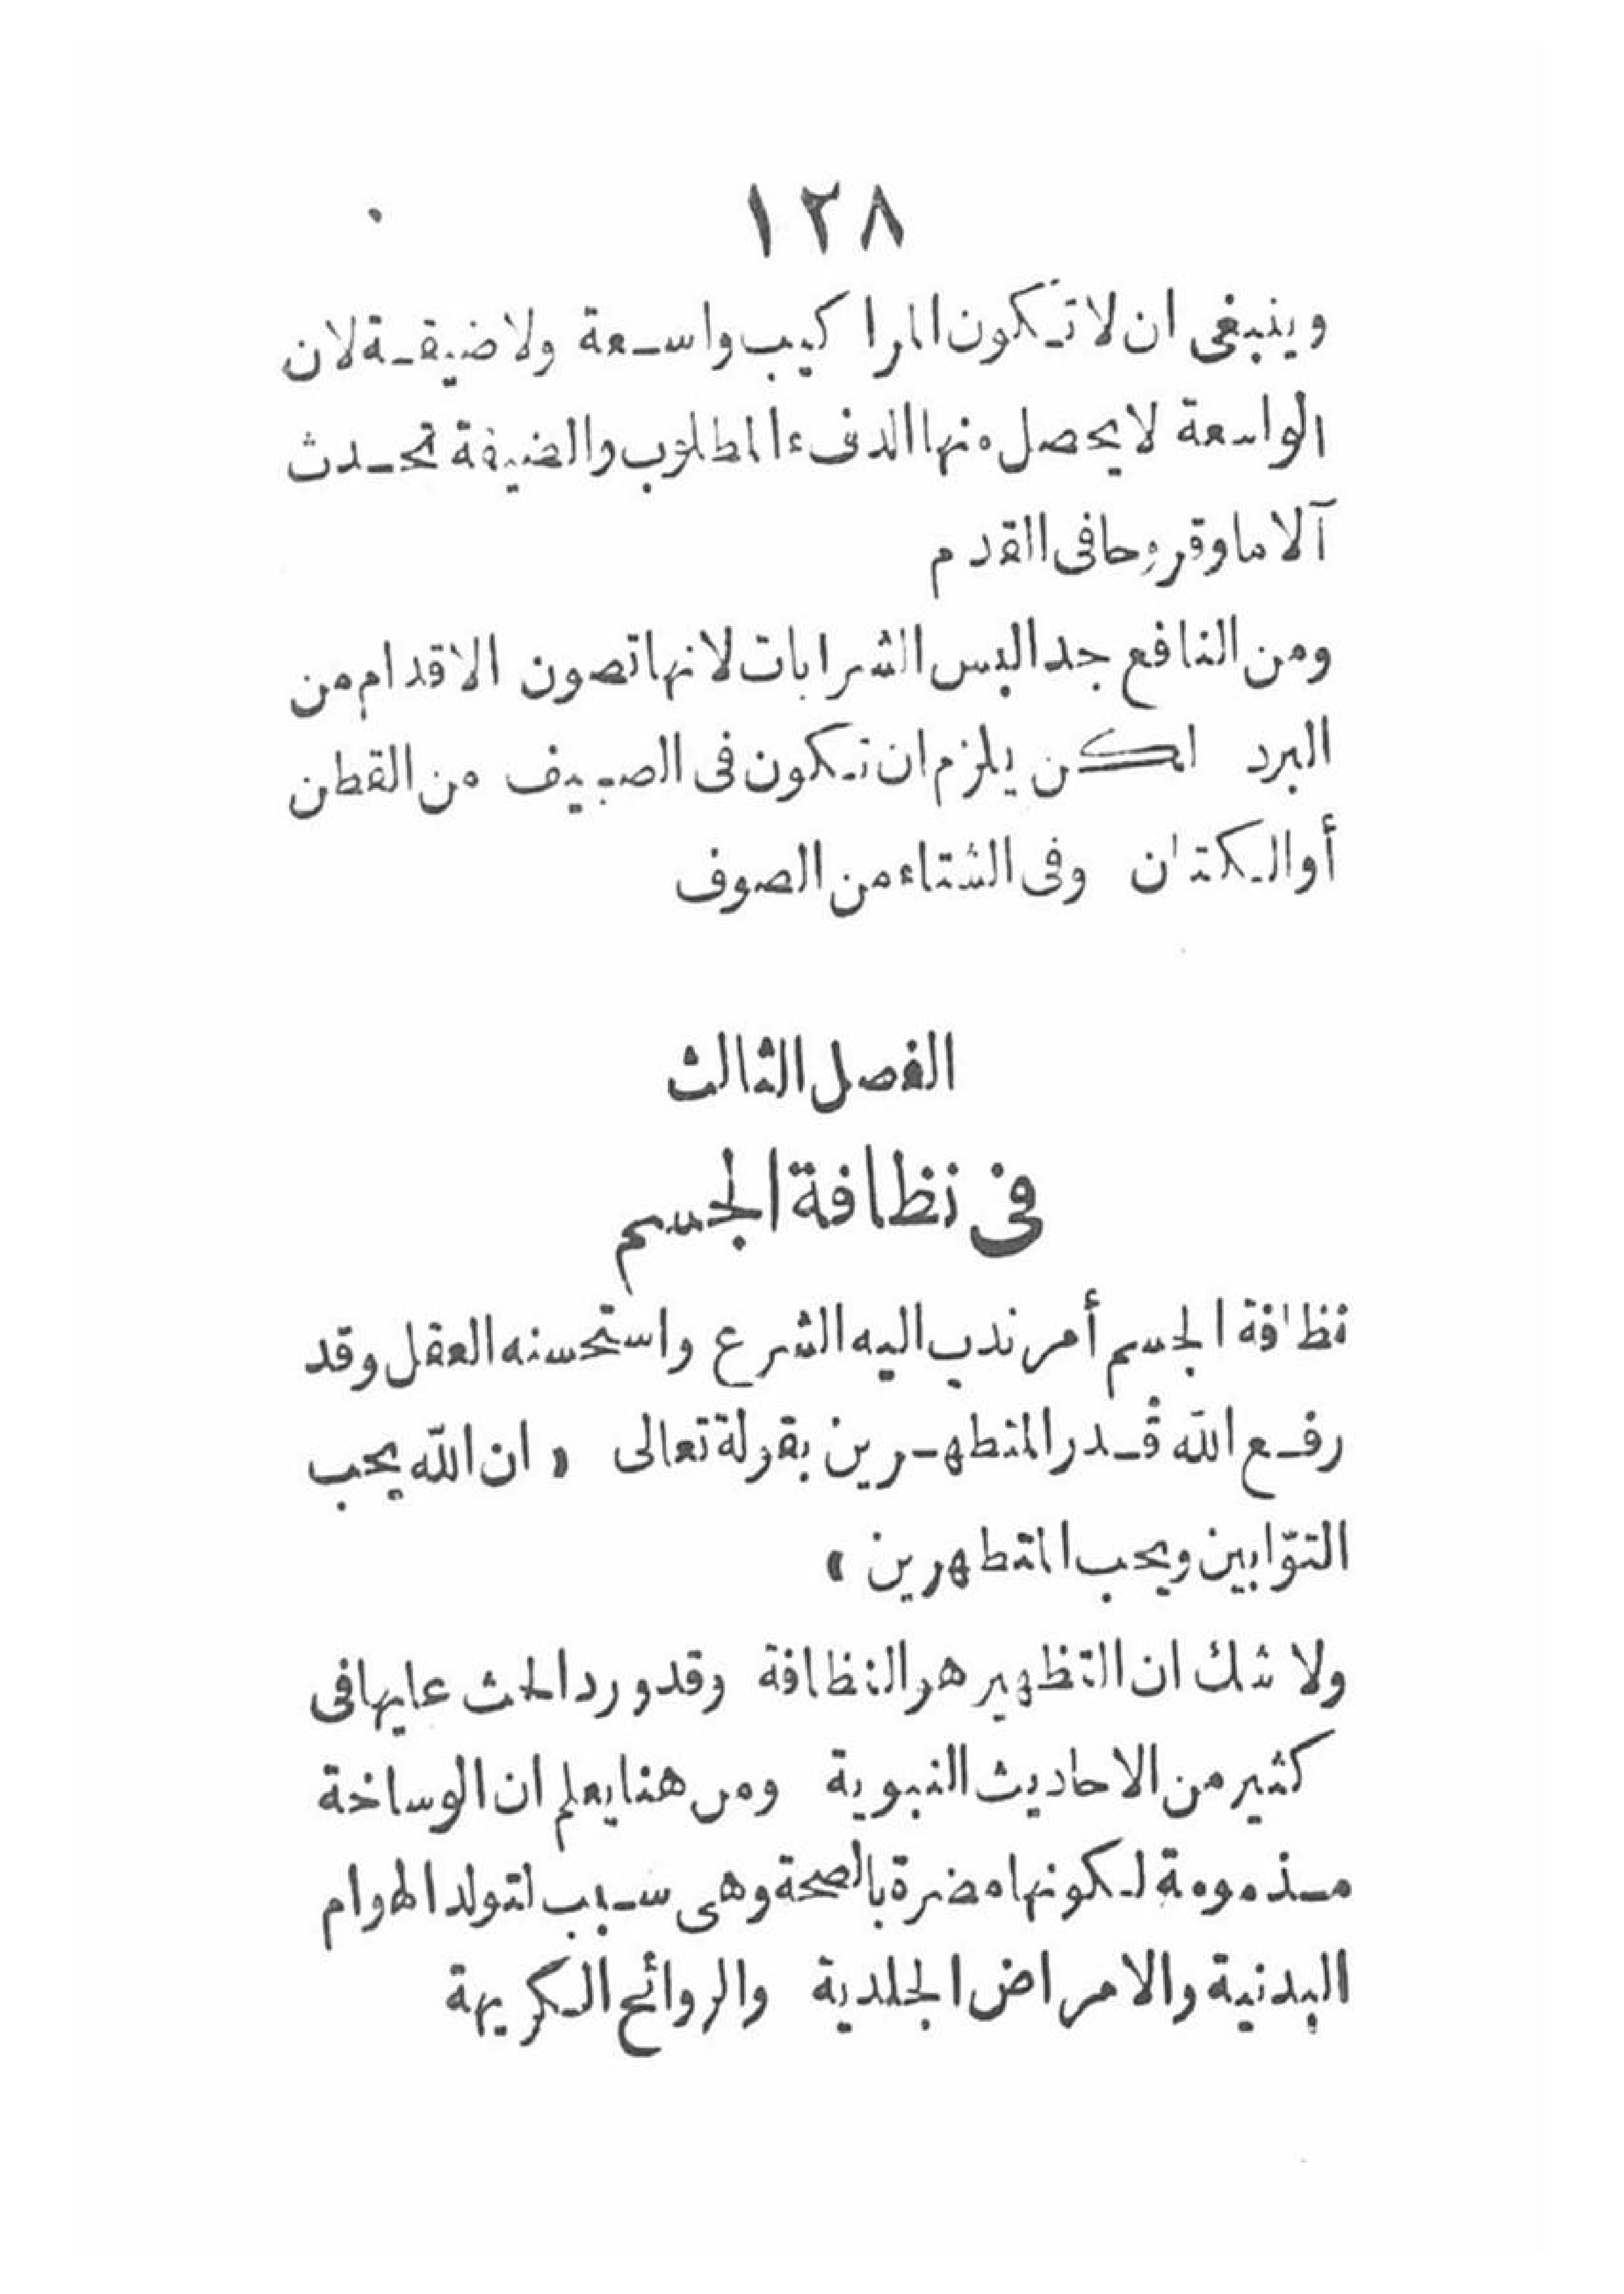 ١٢٨
وينبغى ان لا تكون المراكيب واسعة ولا ضيقة لان
الواسعة لا يحصل منها الدفء المطلوب والضيقة تحدث
آلاما وقروحا فى القدم
ومن النافع جدا لبس الشرابات لانها تصون الاقدام من
البرد لكن يلزم ان تكون فى الصيف من القطن
أو الكتان وفى الشتاء من الصوف
الفصل الثالث
فى نظافة الجسم
نظافة الجسم أمر ندب اليه الشرع واستحسنه العقل وقد
رفع الله قدر المتطهرين بقولة تعالى « ان الله يحب
التوّابين ويحب المتطهرين »
ولا شك ان التظهير هو النظافة وقد ورد الحث عليها فى
كثير من الاحاديث النبوية ومن هنا يعلم ان الوساخة
مذمومة لكونها مضرة بالصحة وهى سبب لتولد الهوام
البدنية والامراض الجلدية والروائح الكريهة